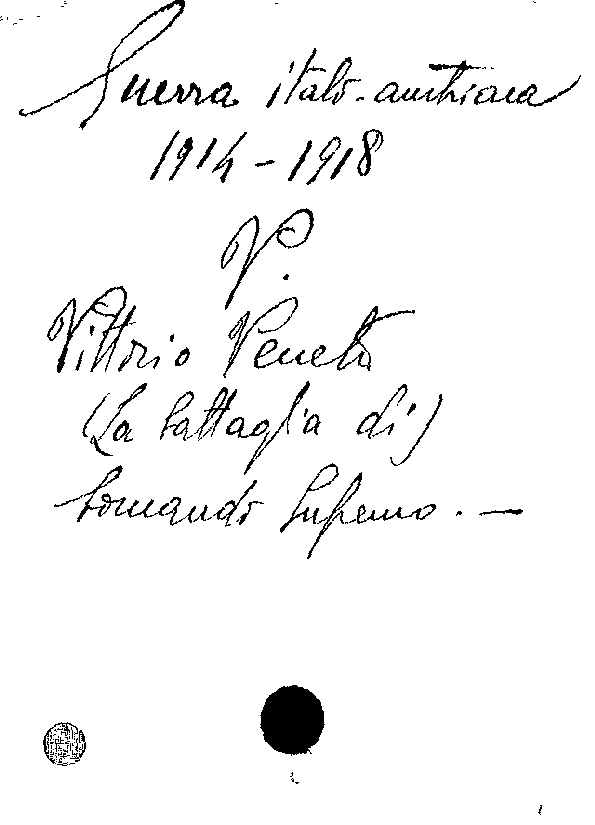 Guerra italo-austriaca
1914-1918
V.
Vittorio Veneto
(La battaglia di)
Comando Supremo. —